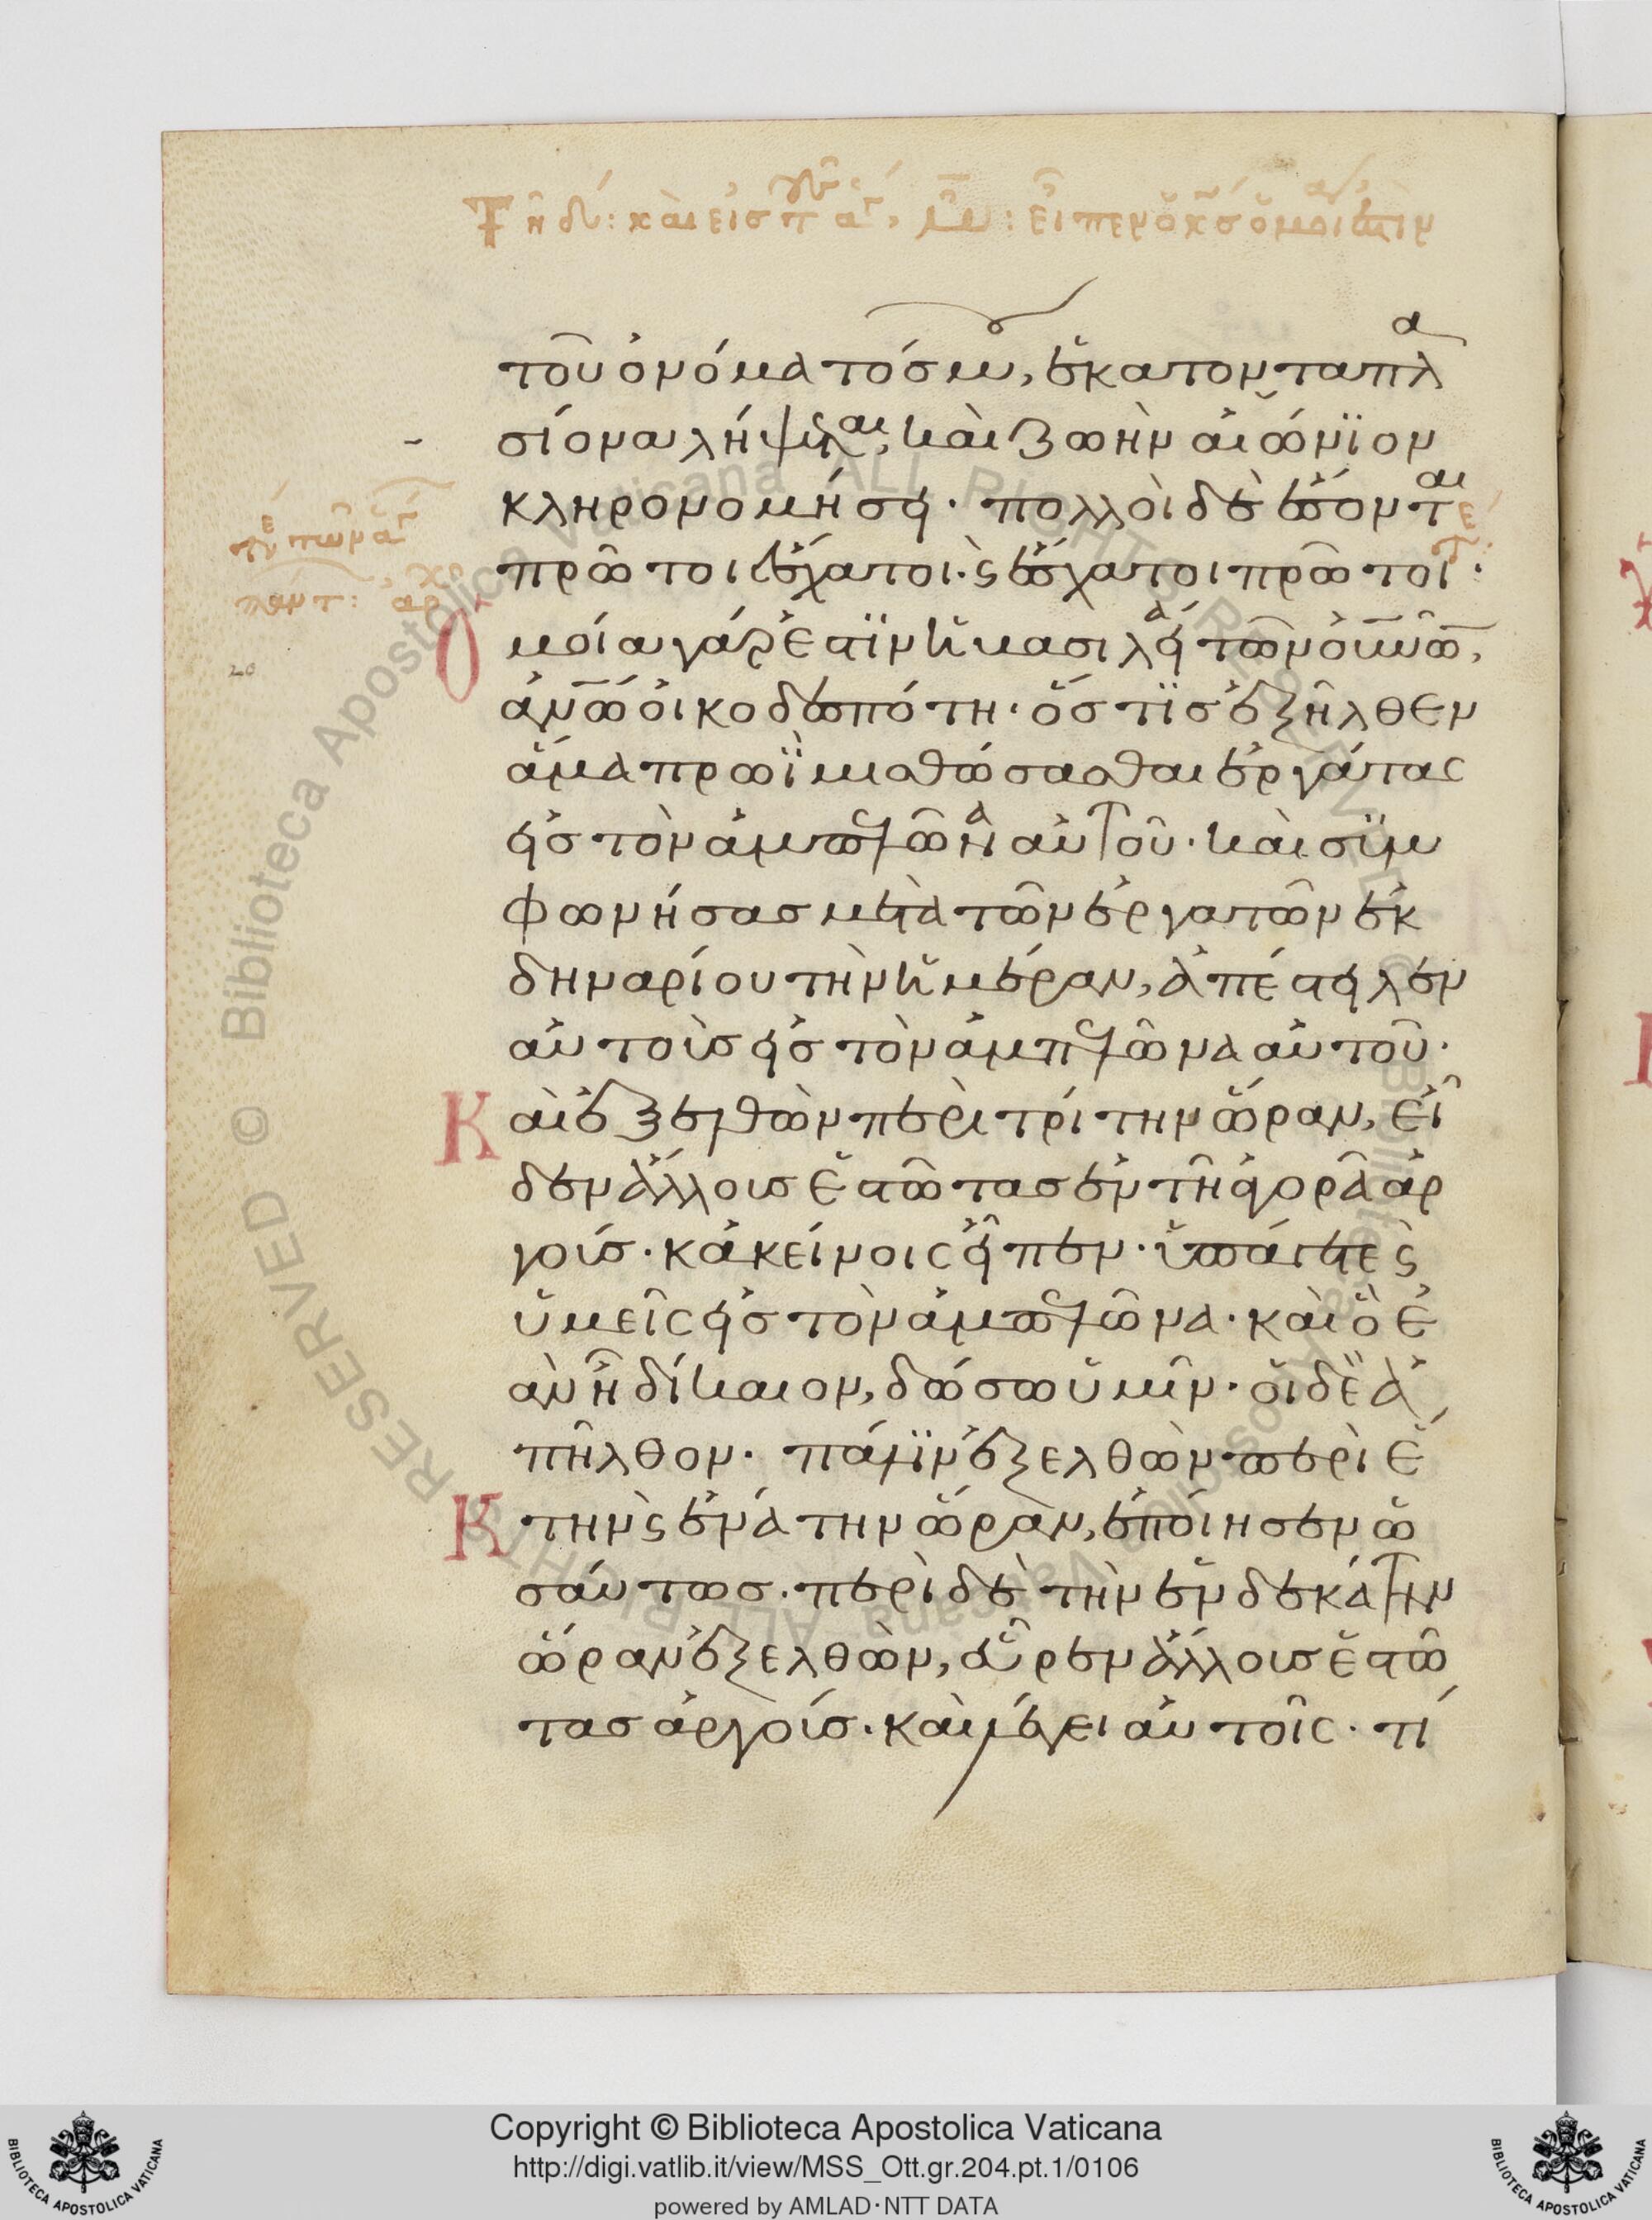 τοῦ ὀνόματός μου, ἑκατονταπλα
σίονα λήψεται, καὶ ζωὴν αἰώνϊον
κληρονομήσει· πολλοὶ δὲ ἔσονται
πρῶτοι ἔσχατοι· ϛ ἔσχατοι πρῶτοι·
Ὁμοία γάρ ἐστϊν ἡ βασιλεία τῶν οὐνῶν,
ἀνω οἰκοδεσπότη· ὅστϊς ἐξῆλθεν
ἅμα πρωῒ μισθώσασθαι ἐργάτας
εἰς τὸν ἀμπελῶνα αὐτοῦ· καὶ συμ
φωνήσας μετὰ τῶν ἐργατῶν ἐκ
δηναρίου τὴν ἡμέραν, ἀπέστειλεν
αὐτοὺς εἰς τὸν ἀμπελῶνα αὐτοῦ·
Καὶ ἐξελθὼν περὶ τρίτην ὥραν, εἶ
δεν ἄλλους ἑστῶτας ἐν τῆ ἀγορᾶ ἀρ
γούς· κἀκείνοις εἶπεν· ὑπάγετε ϛ
ὑμεῖς εἰς τὸν ἀμπελῶνα· καὶ ὃ ἐ
ὰν ἦ δίκαιον, δώσω ὑμῖν· οἱ δὲ ἀ
πῆλθον· πάλϊν ἐξελθὼν περὶ ἕ
Κτην ϛ ἐννάτην ὥραν, ἐποίησεν ὡ
σαύτως· περὶ δὲ τὴν ἑνδεκάτην
ὥραν ἐξελθὼν, εὗρεν ἄλλους ἑστῶ
τας ἀργούς· καὶ λέγει αὐτοῖς· τί
20
Biblioteca Apostolica Vaticana ALL RIGHTS RESERVED ©
Copyright © Biblioteca Apostolica Vaticana
http://digi.vatlib.it/view/MSS_Ott.gr.204.pt.1/0106
powered by AMLAD·NTT DATA
BIBLIOTECA APOSTOLICA VATICANA
BIBLIOTECA APOSTOLICA VATICANA